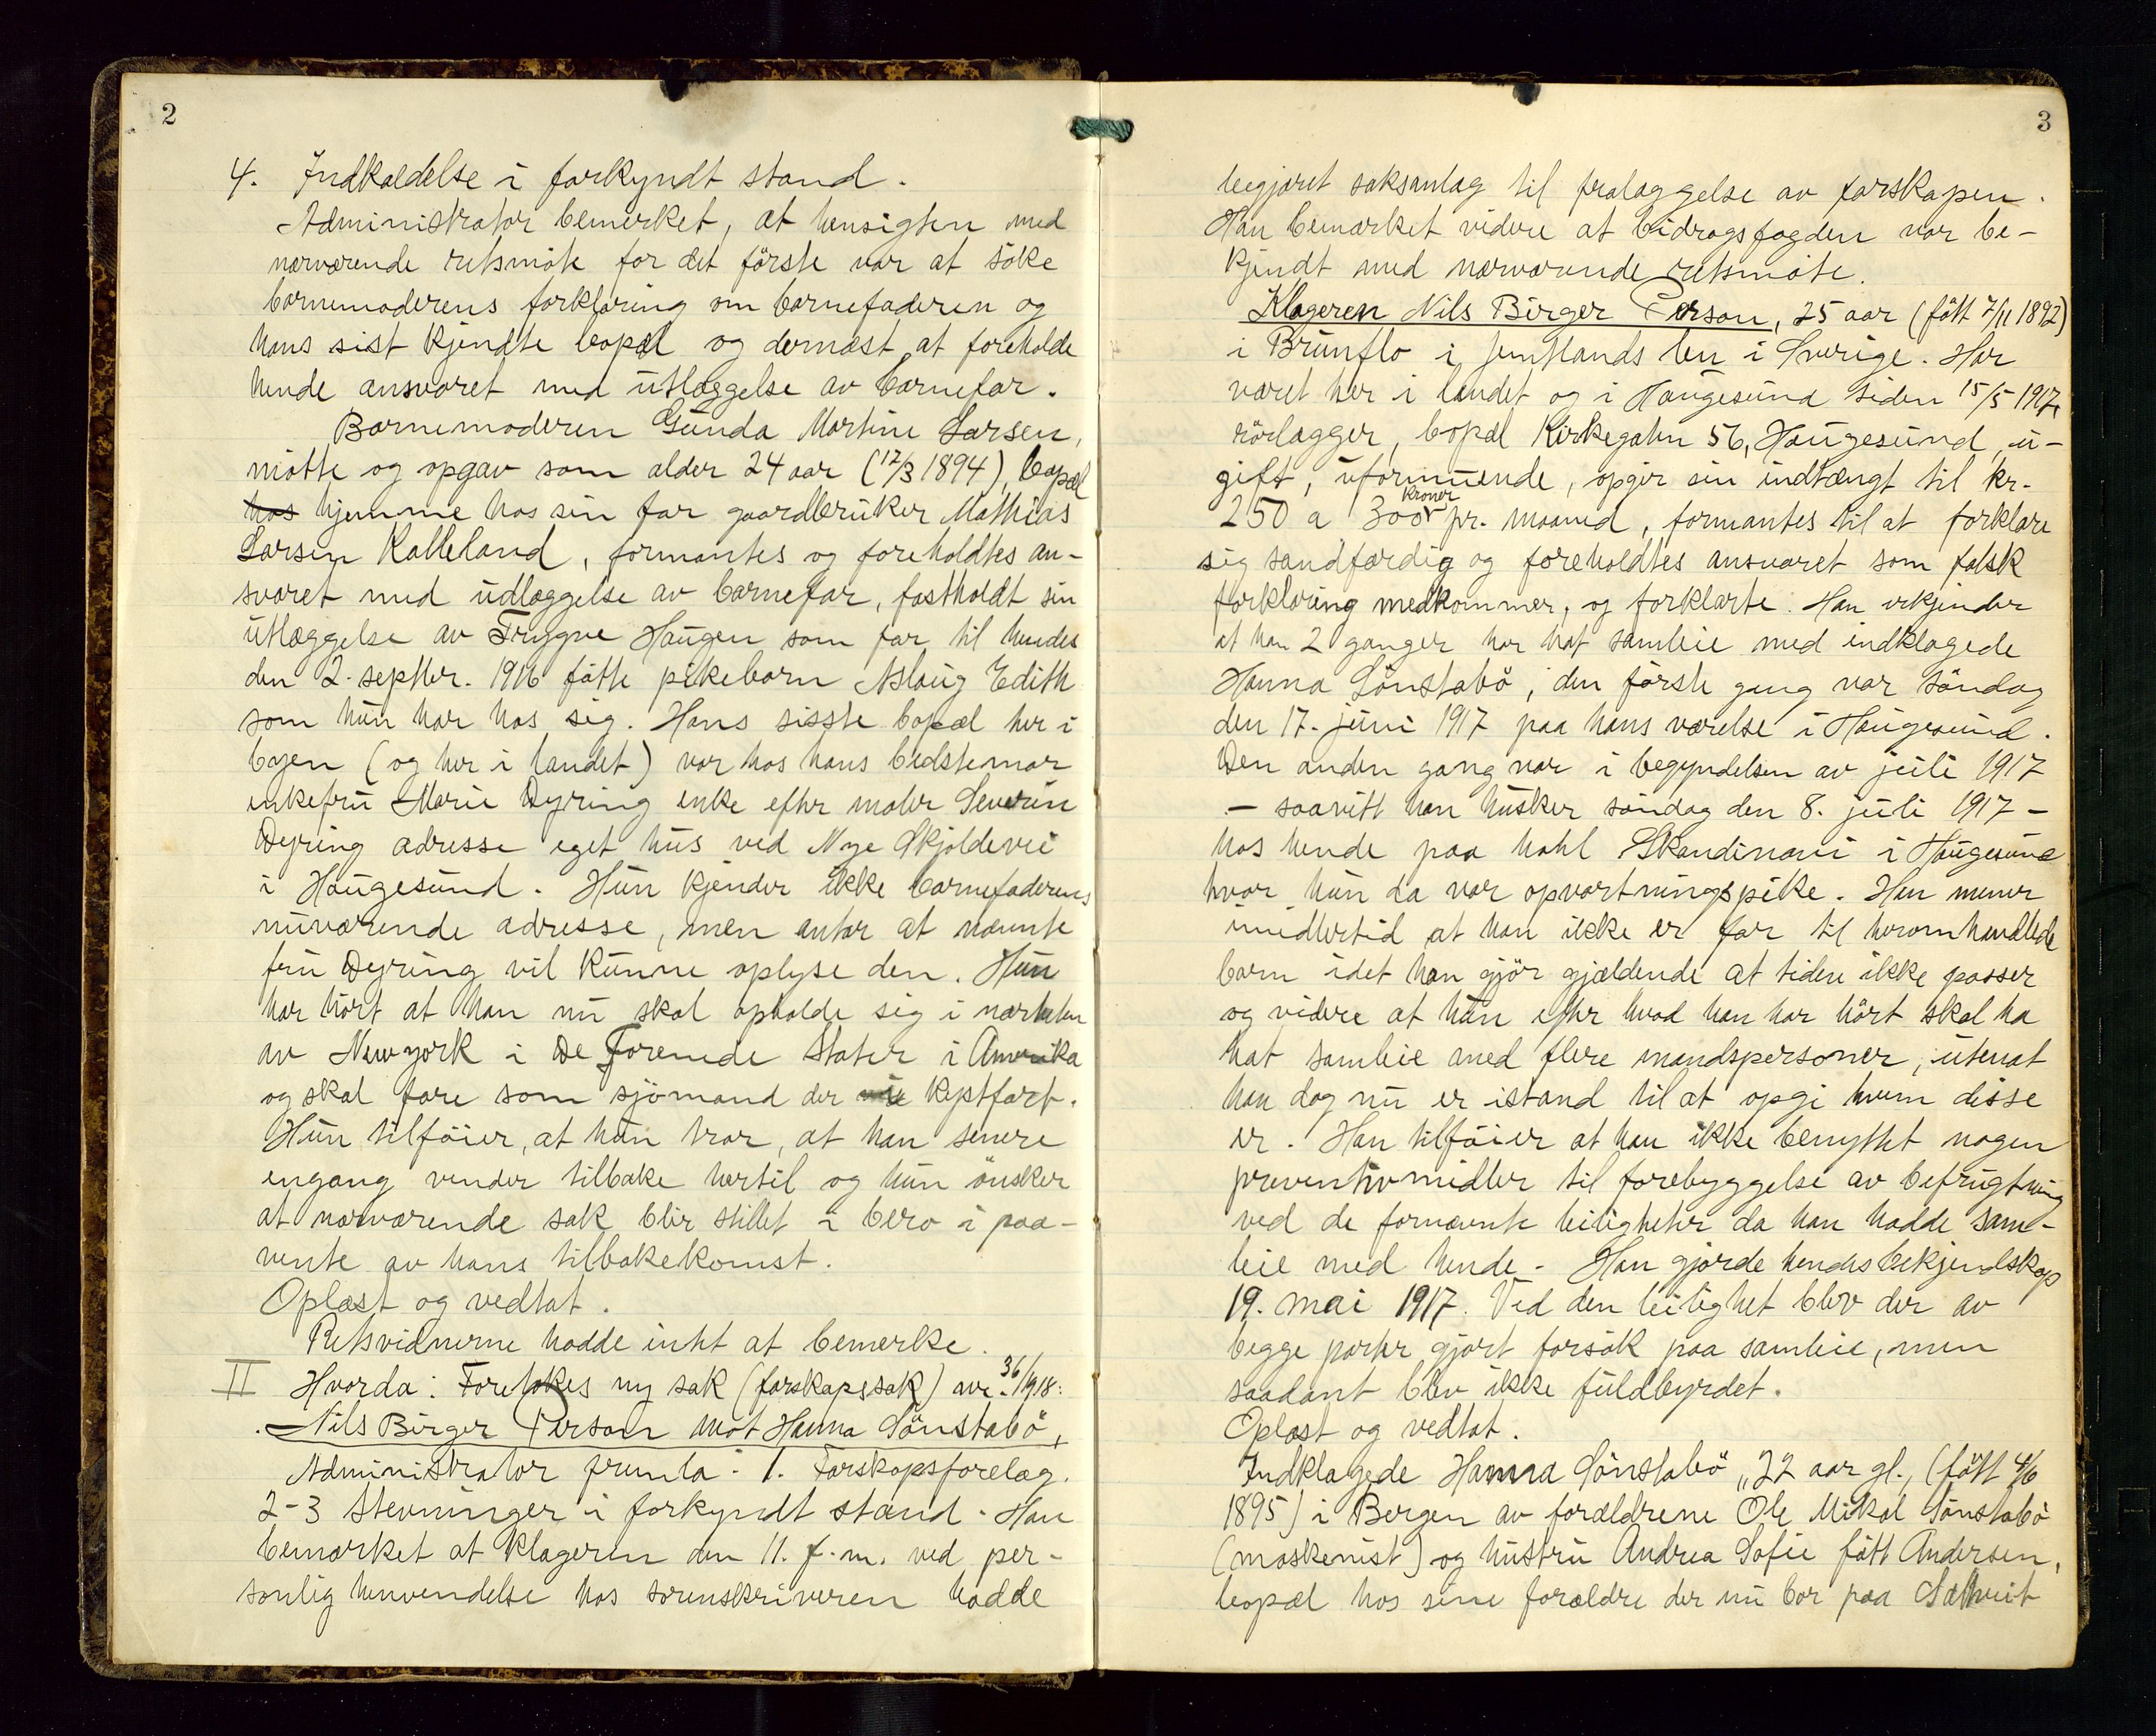 2
4. Indkaldelse i forkyndt stand.
Administrator bemerket, at hensigten med
nærværende retsmöte for det förste var at söke
barnemoderens forklaring om barnefaderen og
hans sist kjendte bopæl og dernæst at foreholde
hende ansvaret med utlæggelse av barnefar.
Barnemoderen Gunda Martine Larsen,
mötte og opgav som alder 24 aar (12/3 1894), bopæl
hos hjemme hos sin far gaardbruker Mathias
Larsen Kalleland, formantes og foreholdtes an-
svaret med udlæggelse av barnefar, fastholdt sin
utlæggelse av Trygve Haugen som far til hendes
den 2. septber. 1916 fötte pikebarn Aslaug Edith
som hun har hos sig. Hans sisste bopæl her i
byen (og her i landet) var hos hans bedstemor
enkefru Marie Dyring enke efter maler Severin
Dyring adresse eget hus ved Nye Skjoldevei
i Haugesund. Hun kjender ikke barnefaderens
nuværende adresse, men antar at nævnte
fru Dyring vil kunne oplyse den. Hun
har hört at han nu skal opholde sig i nærheten
av New york i De Forenede Stater i Amerika
og skal fare som sjömand der kystfart.
Hun tilföier, at hun tror, at han senere
engang vender tilbake hertil og hun önsker
at nærværende sak blir stillet i bero i paa-
vente av hans tilbakekomst.
Oplæst og vedtat.
Retsvidnerne hadde intet at bemerke.
II Hvorda: Foretokes ny sak (farskapssak) nr. 36/1918:
Nils Birger Person mot Hanna Sönstabö,
Administrator fremla: 1. Farskapsforelæg.
2-3 Stevninger i forkyndt stand. Han
bemærket at klageren den 11. f.m. ved per-
sonlig henvendelse hos sorenskriveren hadde
3
begjæret saksanlæg til fralæggelse av farskapen.
Han bemærket videre at bidragsfogden var be-
kjendt med nærværende retsmöte.
Klageren Nils Birger Person, 25 aar (fött 7/11 1892)
i Brunflo i Jemtlands len i Sverige. Har
været her i landet og i Haugesund siden 15/5 1917,
rörlægger, bopæl Kirkegaten 56, Haugesund, u-
gift, uformuende, opgir sin indtægt til kr.
250 a 300 kroner pr. maaned, formantes til at forklare
sig sandfærdig og foreholdtes ansvaret som falsk
forklaring medkommer, og forklarte: Han erkjender
at han 2 ganger har hat samleie med indklagede
Hanna Sönstabö, den förste gang var söndag
den 17. juni 1917 paa hans værelse i Haugesund.
Den anden gang var i begyndelsen av juli 1917
– saavitt han husker söndag den 8. juli 1917 –
hos hende paa hotel Skandinavi i Haugesund
hvor hun da var opvartningspike. Han mener
imidlertid at han ikke er far til heromhandlede
barn idet han gjör gjældende at tiden ikke passer
og videre at hun efter hvad han har hört skal ha
hat samleie med flere mandspersoner, utenat
han dog nu er istand til at opgi hvem disse
er. Han tilföier at han ikke benyttet nogen
preventivmidler til forebyggelse av befrugtning
ved de fornævnte leiligheter da han hadde sam-
leie med hende. Han gjorde hendes bekjendskap
19. mai 1917. Ved den leilighet blev der av
begge parter gjort forsök paa samleie, men
saadant blev ikke fuldbyrdet.
Oplæst og vedtat.
Indklagede Hanna Sönstabö, 22 aar gl., (fött 4/6
1895) i Bergen av forældrene Ole Mikal Sönstabö
(maskenist) og hustru Andrea Sofie fött Andersen,
bopæl hos sine forældre der nu bor paa Sæltveit